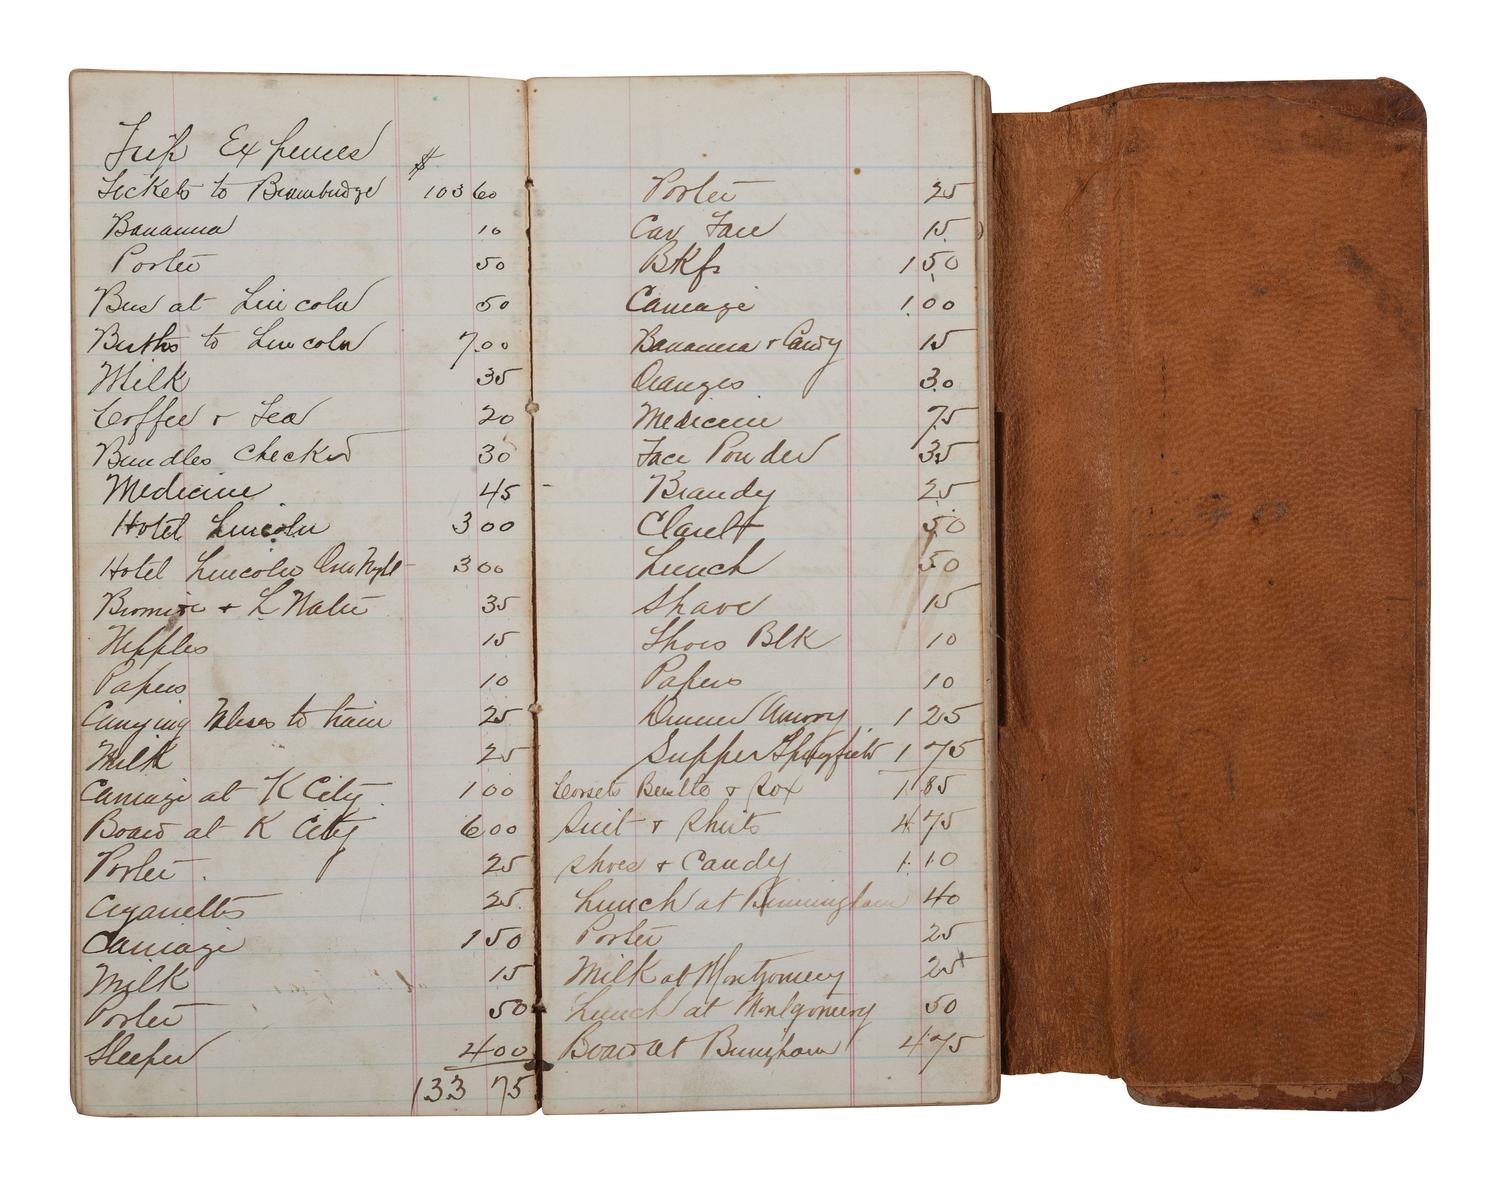 Trip Expences
$
Tickets to Bainbridge 103 60
Bananna 10
Porter 50
Bus at Lincoln 50
Births to Lincoln 7.00
Milk 35
Coffee + Tea 20
Bundles Checked 30
Medicine 45
Hotel Lincoln 3 00
Hotel Lincoln One Night 3 00
Bromise + L Water 35
Nipples 15
Papers 10
Carrying Valises to train 25
Milk 25
Carriage at K City. 1 00
Board at K City 6 00
Porter. 25
Cigaretts 25
Carriage 1 50
Milk 15
Porter 50
Sleeper 4 00
133 75
Porter 25
Car Fare 15
BKfs 1 50
Carriage 1.00
Bananna + Candy 15
Oranges 30
Medicine 75
Face Powder 35
Brandy 25
Claret 50
Lunch 50
Shave 15
Shoes Blk 10
Papers 10
Dinner Amory 1 25
Supper Springfield 1 75
Corsets Beults + Sox 1 85
Suit + Shirts 4 75
Shoes + Candy 1.10
Lunch at Birmingham 40
Porter 25
Milk at Montgomery 25
Lunch at Montgomery 50
Board at Bringham 4 75